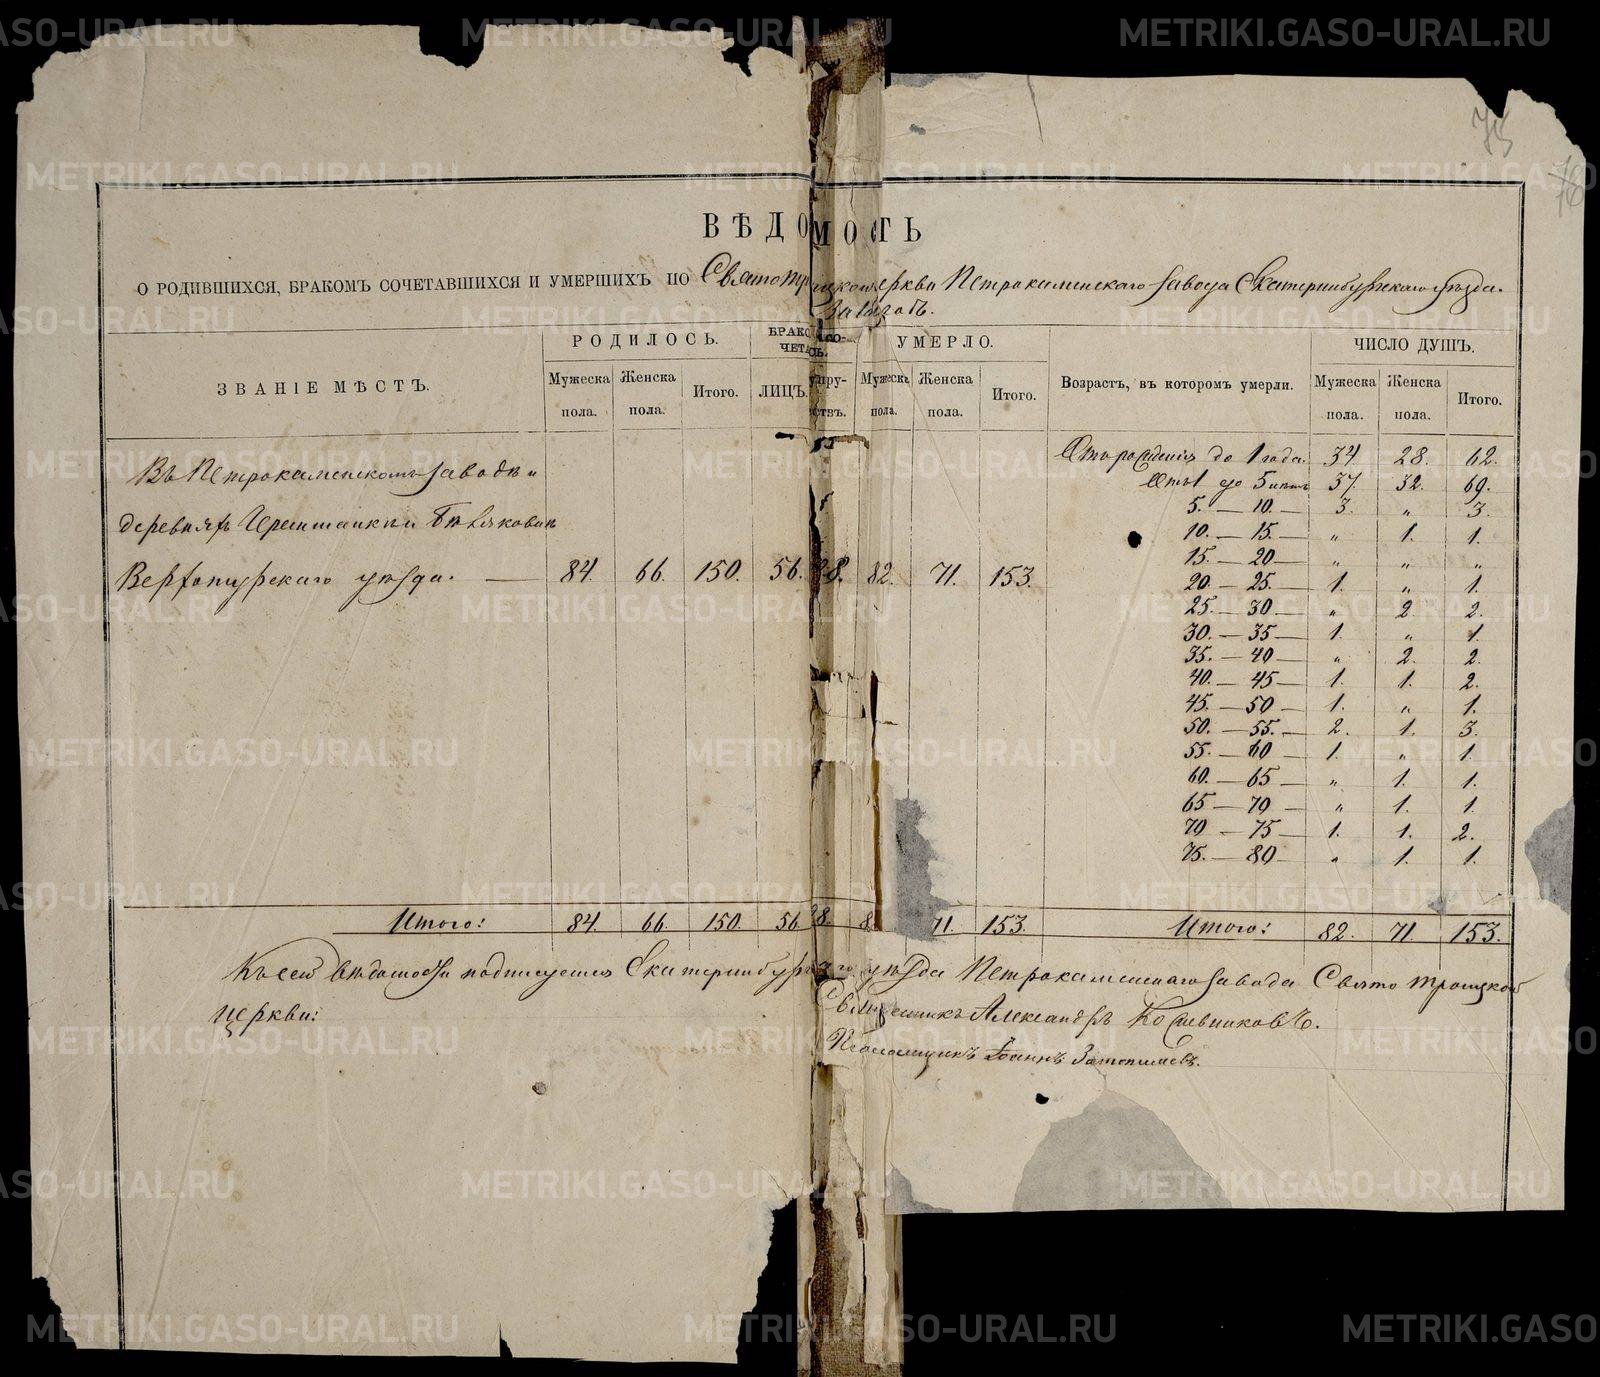 75
76
ВѢДОМОСТЬ
О РОДИВШИХСЯ, БРАКОМЪ СОЧЕТАВШИХСЯ И УМЕРШИХЪ ПО Свято Троицкой церкви Петрокаменскаго завода Екатеринбургскаго уѣзда.
ЗВАНІЕ МѢСТЪ.
РОДИЛОСЬ.
Мужеска пола.
Женска пола.
Итого.
БРАКО СО-
ЧЕТА СЬ.
ЛИЦЪ.
УМЕРЛО.
Мужеска пола.
Женска пола.
Итого.
Возрастъ, въ которомъ умерли.
ЧИСЛО ДУШЪ.
Мужеска пола.
Женска пола.
Итого.
Въ Петрокаменскомъ заводѣ и
деревняхъ
Верхотурскаго уѣзда. — 84. 66. 150. 56. 28. 82. 71. 153.
Отъ рожденія до 1 года. 34 28. 62.
Отъ 1 до 5 лѣтъ 37. 32. 69.
5. — 10. — 3. „ 3.
10. — 15. — „ 1. 1.
15. — 20 — „ „ „
20 — 25. — 1. „ 1.
25. — 30 — „ 2. 2.
30. — 35 — 1. „ 1.
35. — 40 — „ 2. 2.
40. — 45 — 1. 1. 2.
45. — 50 — 1. „ 1.
50. — 55. — 2. 1. 3.
55 — 60 — 1. „ 1.
60. — 65 — „ 1. 1.
65 — 70 — „ 1. 1.
70 — 75 — 1. 1. 2.
75. — 80 — „ 1. 1.
Итого: 84. 66. 150. 56. 28. 8 71. 153. Итого: 82. 71. 153.
Къ сей вѣдомости подписуемся Екатеринбургскаго уѣзда Петрокаменскаго завода Свято Троицкой
церкви:
Священникъ Александръ Кожевниковъ.
Псаломщикъ Іоаннъ
METRIKI.GASO-URAL.RU